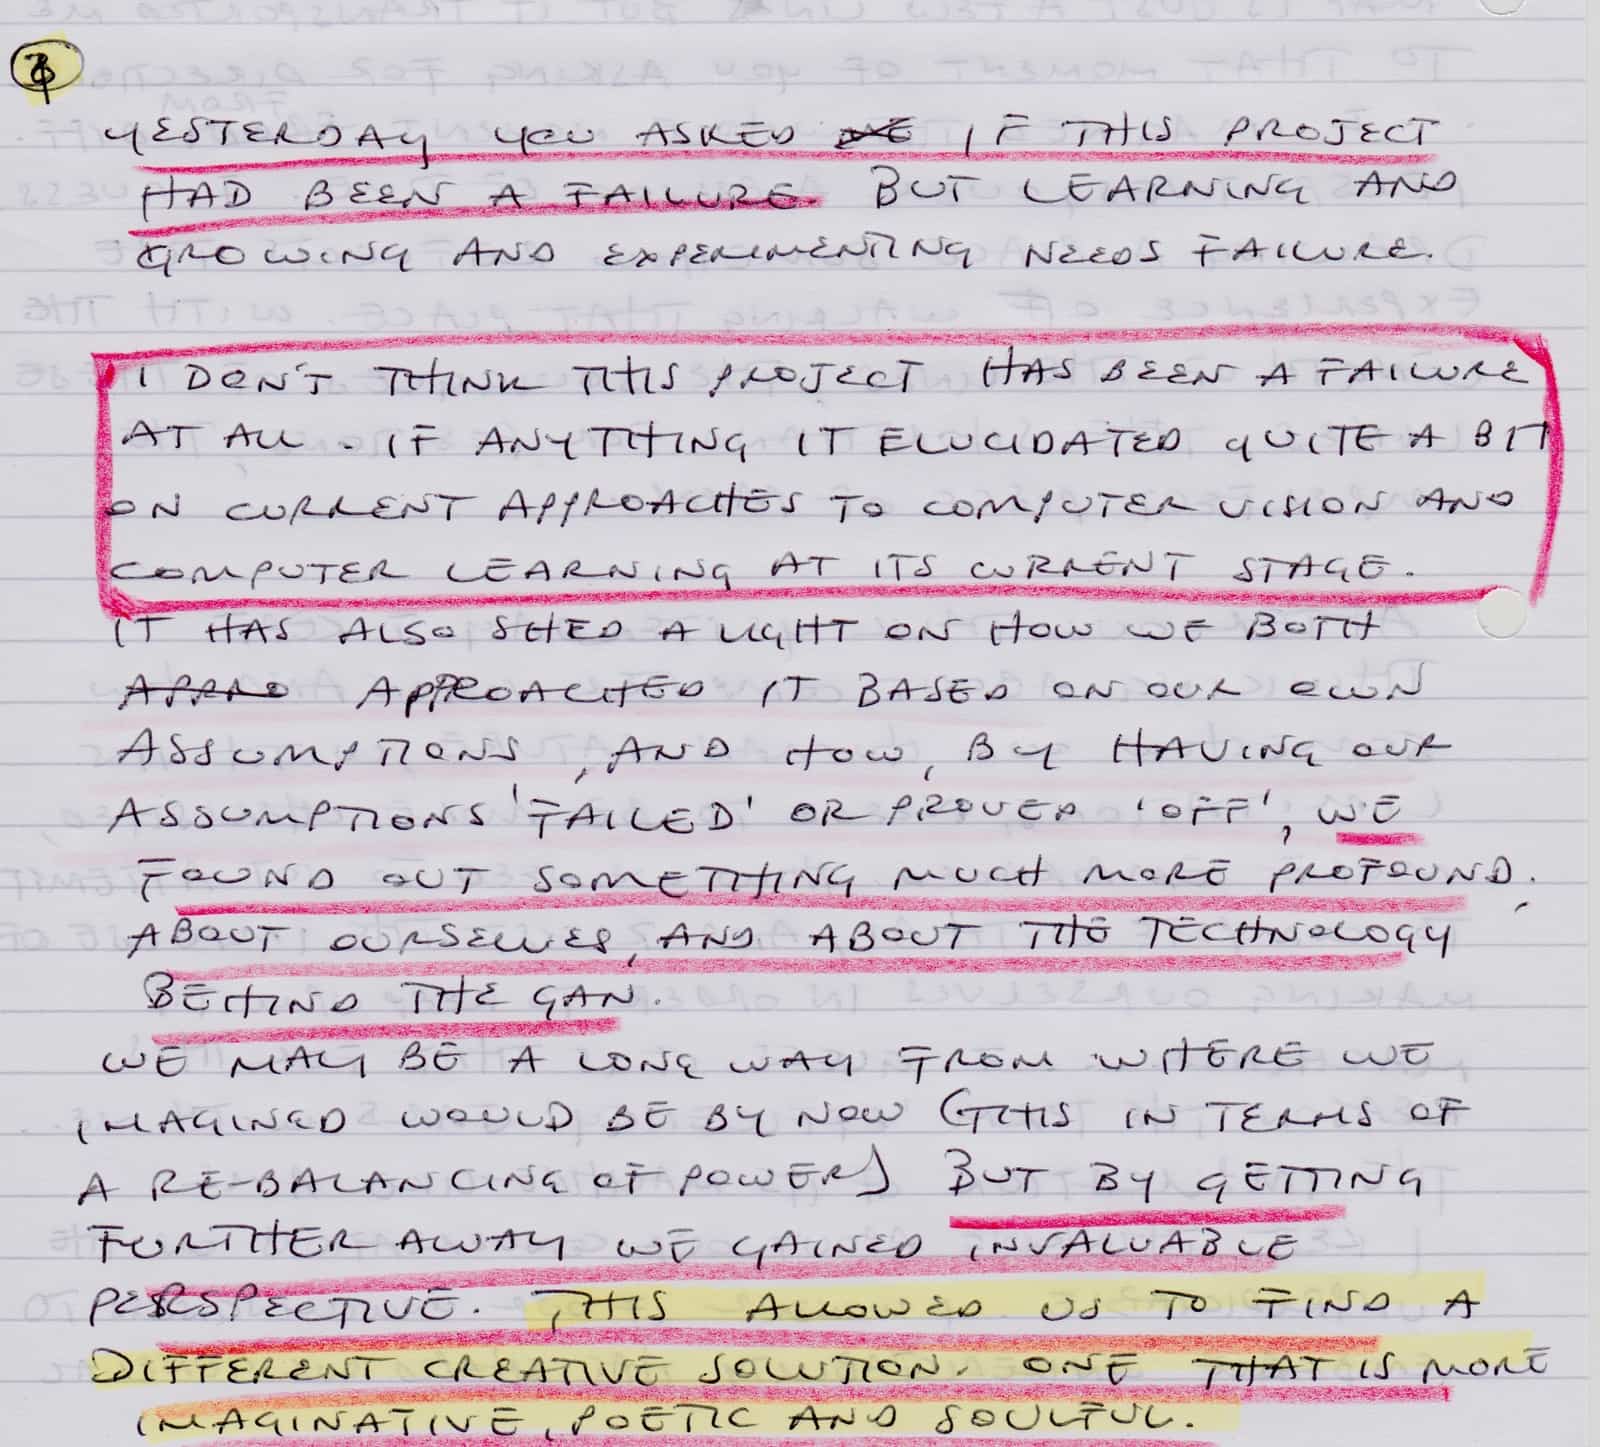 YESTERDAY YOU ASKED ME IF THIS PROJECT
HAD BEEN A FAILURE. BUT LEARNING AND
GROWING AND EXPERIMENTING NEEDS FAILURE.
I DON'T THINK THIS PROJECT HAS BEEN A FAILURE
AT ALL. IF ANYTHING IT ELUCIDATED QUITE A BIT
ON CURRENT APPROACHES TO COMPUTER VISION AND
COMPUTER LEARNING AT ITS CURRENT STAGE.
IT HAS ALSO SHED A LIGHT ON HOW WE BOTH
APPRO APPROACHED IT BASED ON OUR OWN
ASSUMPTIONS, AND HOW, BY HAVING OUR
ASSUMPTIONS 'FAILED' OR PROVED 'OFF', WE
FOUND OUT SOMETHING MUCH MORE PROFOUND,
ABOUT OURSELVES, AND ABOUT THE TECHNOLOGY
BEHIND THE GAN.
WE MAY BE A LONG WAY FROM WHERE WE
IMAGINED WOULD BE BY NOW (THIS IN TERMS OF
A RE-BALANCING OF POWER) BUT BY GETTING
FURTHER AWAY WE GAINED INVALUABLE
PERSPECTIVE. THIS ALLOWED US TO FIND A
DIFFERENT CREATIVE SOLUTION. ONE THAT IS MORE
IMAGINATIVE, POETIC AND SOULFUL.